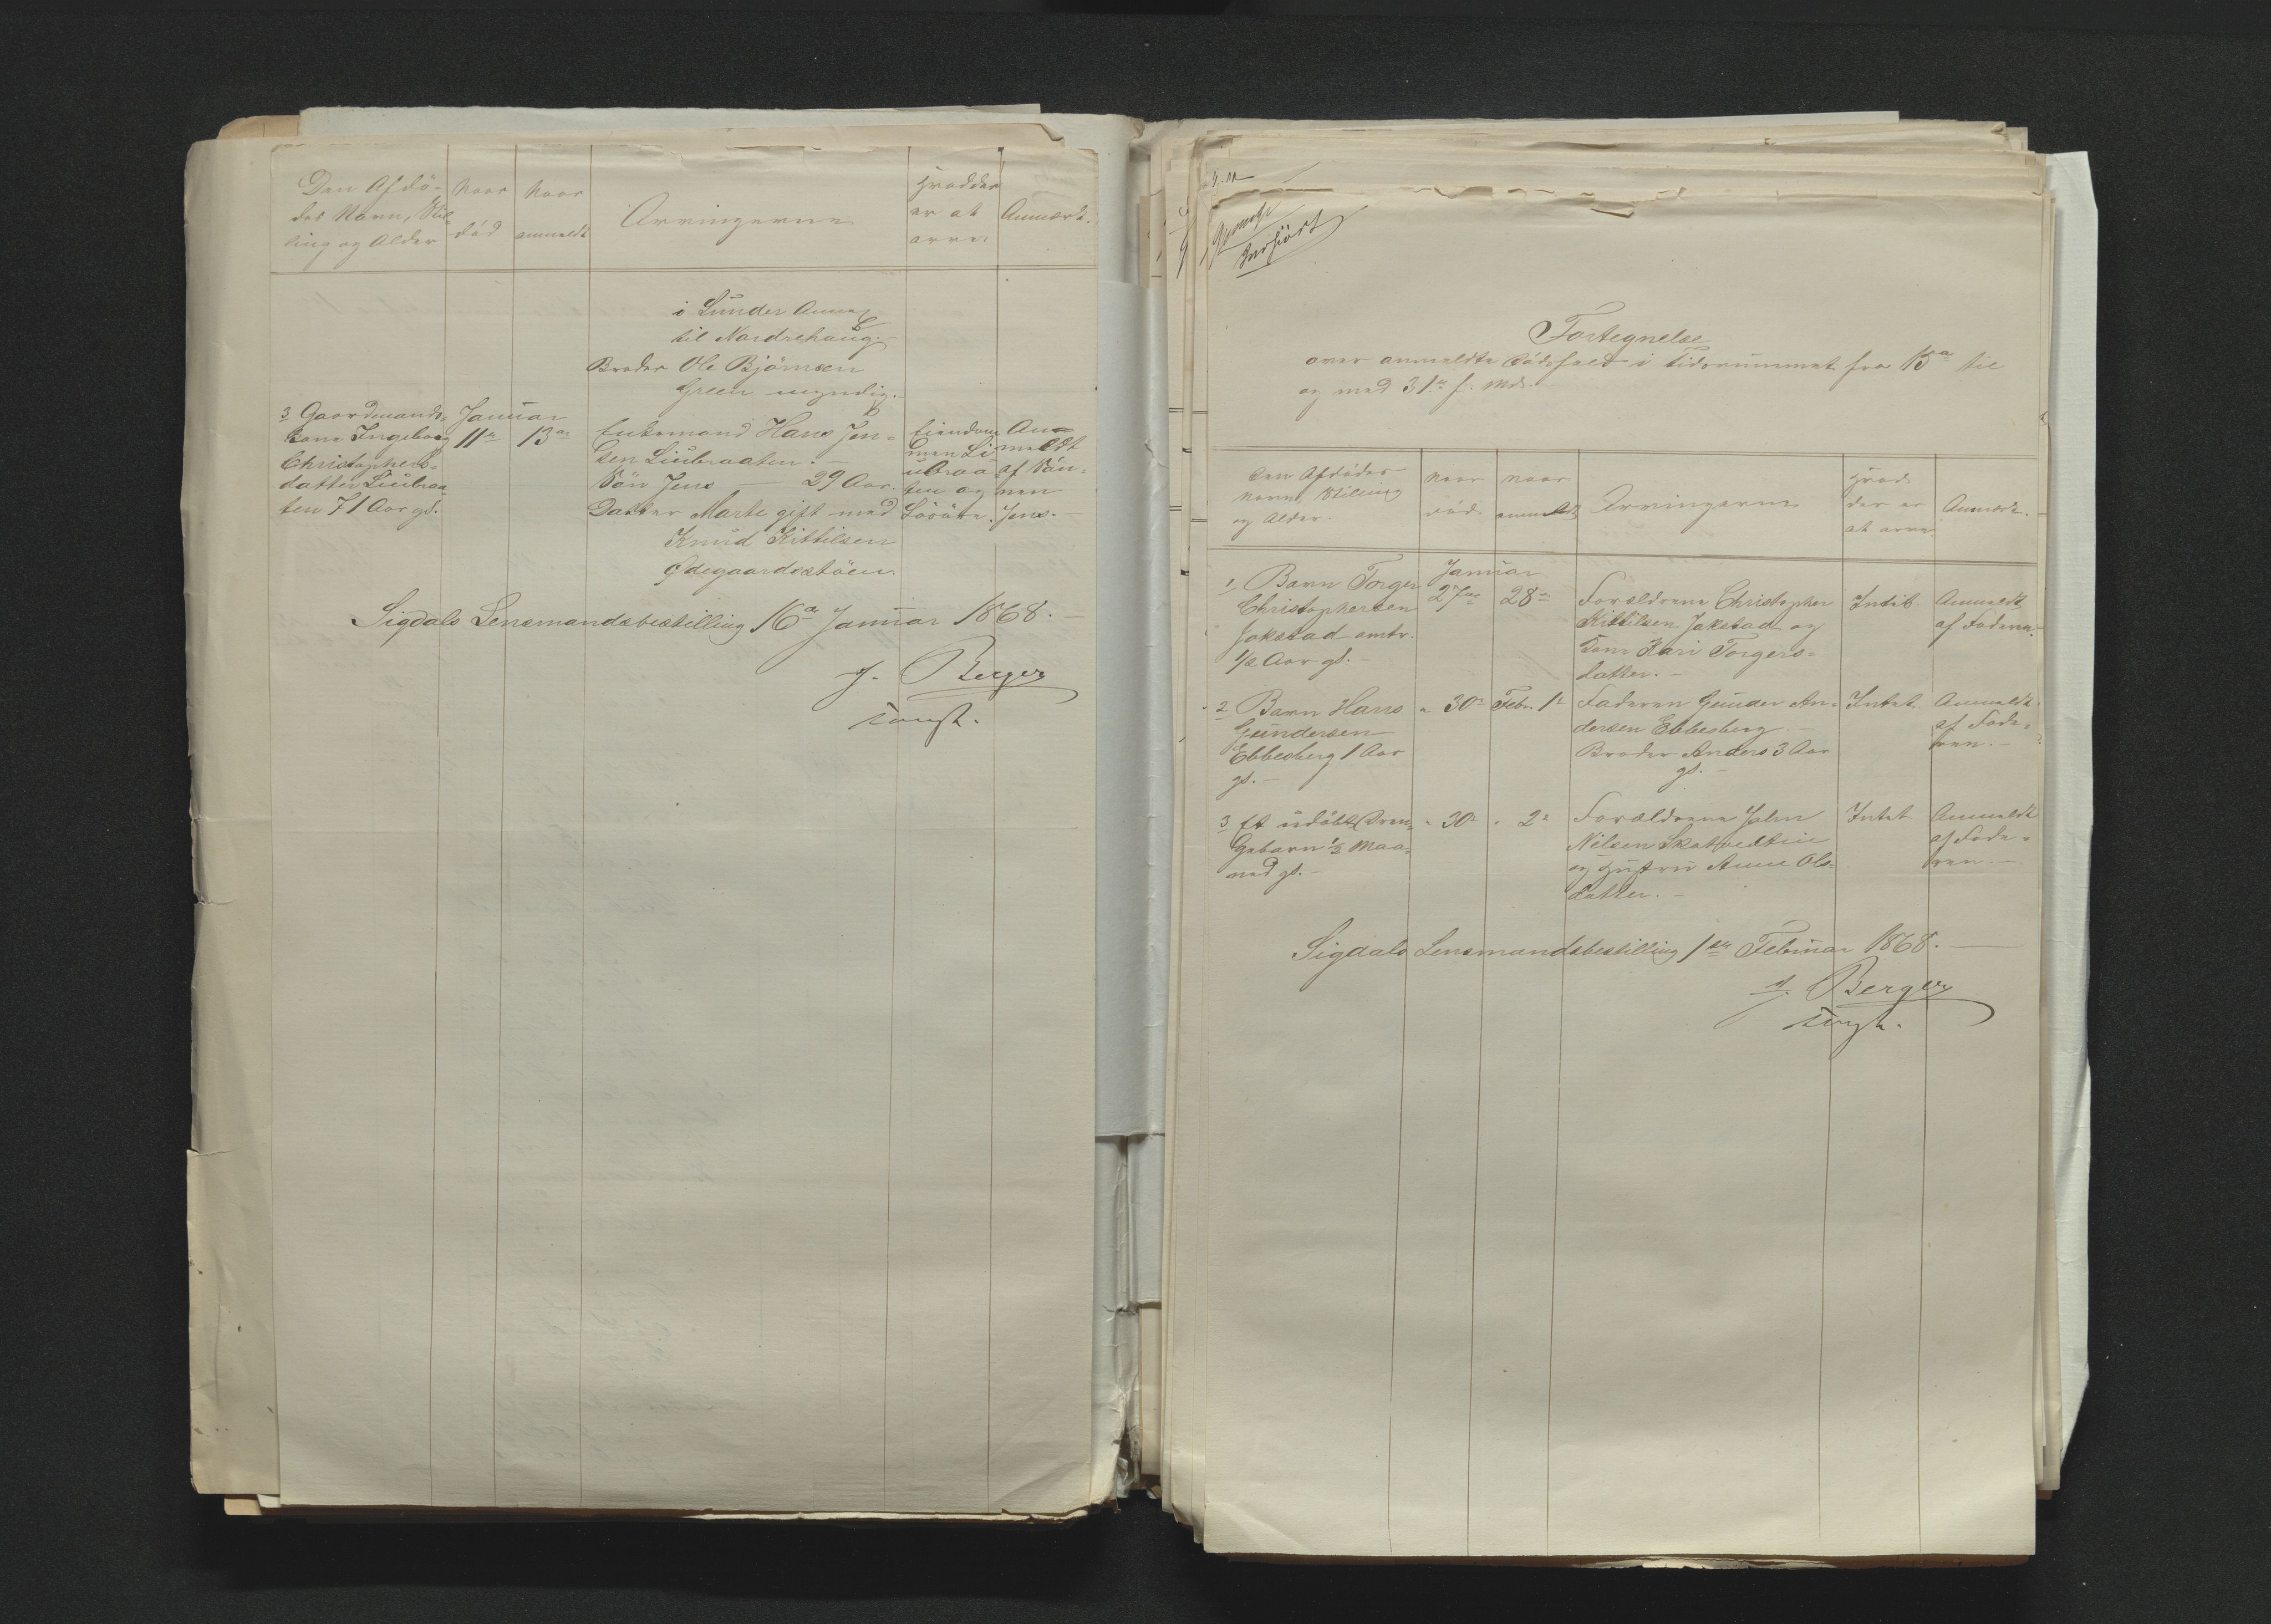 Den Afdö-
des Navn, Stil-
ling og Alder
Naar
död
Naar
anmeldt
Arvingerne
Hvad der
er at
arve.
Anmærk.
i Lunder Annex
til Nordrehaug.
Broder Ole Björnsen
Green myndig.
3 Gaardmands-
kone Ingeborg
Christophers-
datter Liubraa-
ten 71 Aar gl.
Januar
11te
13de
Enkemand Hans Jen-
sen Liubraaten. —
Sön Jens — 29 Aar.
Datter Marte gift med
Knud Kittilsen
Ødegaardsstöen.
Eiendom-
men Li-
ubraa-
ten og
Lösöre.
An-
meldt
af Sön-
nen
Jens. —
Sigdals Lensmandsbestilling 16de Januar 1868. —
J. Berger
konst.
Indfört
Fortegnelse
over anmeldte Dödsfald i Tidsrummet fra 15de til
og med 31te f. Md.
Den Afdödes
Navn, Stilling
og Alder.
Naar
död
Naar
anmeldt
Arvingerne
Hvad
der er
at arve
Anmærk.
1 Barn Torger
Christophersen
Jokstad omtr.
1/2 Aar gl. —
Januar
27de
28de
Forældrene Christopher
Kittilsen Jokstad og
Kone Kari Torgers-
datter. —
Intet.
Anmeldt
af Faderen.
2 Barn Hans
Gundersen
Ebbesberg 1 Aar
gl. —
" 30te
Febr. 1te
Faderen Gunder An-
dersen Ebbesberg. —
Broder Anders 3 Aar
gl. —
Intet.
Anmeldt
af Fade-
ren. —
3 Et udöbt Dren-
gebarn 1/2 Maa-
ned gl. —
" 30te
" 2de
Forældrene John
Nilsen Skatvedteie
og Hustru Anne Ols-
datter. —
Intet
Anmeldt
af Fade-
ren. —
Sigdals Lensmandsbestilling 1ste Februar 1868. —
J. Berger
konst.